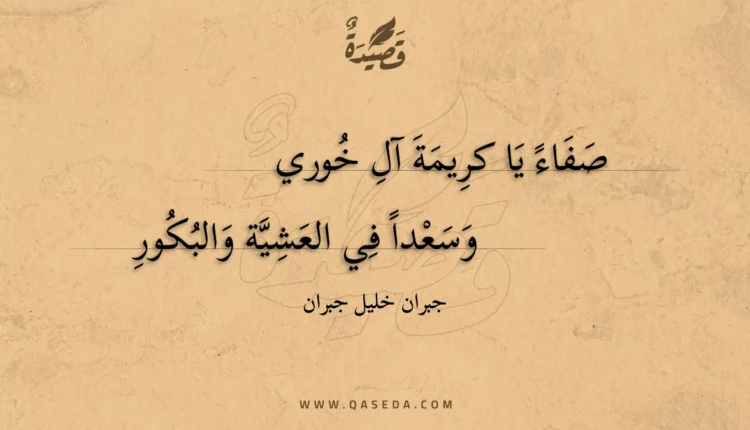 قَصِيدَةٌ
صَفَاءً يَا كرِيمَةَ آلِ خُوري
وَسَعْداً فِي العَشِيَّة وَالبُكُورِ
جبران خليل جبران
WWW.QASEDA.COM